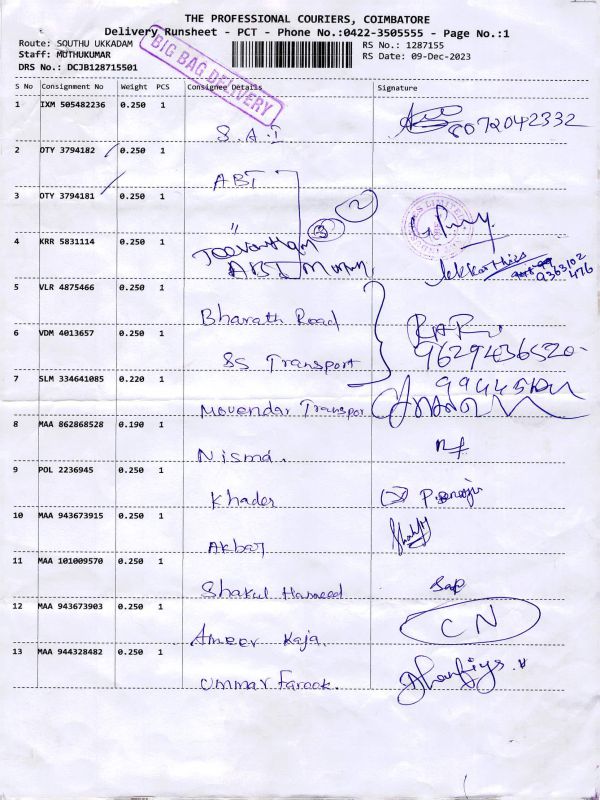 THE PROFESSIONAL COURIERS, COIMBATORE
Delivery Runsheet - PCT - Phone No.:0422-3505555 - Page No.:1
Route: SOUTHU UKKADAM
RS No.: 1287155
Staff: MUTHUKUMAR
RS Date: 09-Dec-2023
DRS No.: DCJB128715501
BIG BAG DELIVERY
S No Consignment No Weight PCS Consignee Details Signature
1 IXM 505482236 0.250 1
S.A.I 8072042332
2 OTY 3794182 0.250 1
ABT
3 OTY 3794181 0.250 1
"
3 2
4 KRR 5831114 0.250 1
ABT
9363102
476
5 VLR 4875466 0.250 1
Bharath Road
6 VDM 4013657 0.250 1
SS Transport 9629436520
7 SLM 334641085 0.220 1
Movendar Transpor
8 MAA 862868528 0.190 1
Nisma.
9 POL 2236945 0.250 1
Khader
10 MAA 943673915 0.250 1
Akbar
11 MAA 101009570 0.250 1
Shakul Hameed
12 MAA 943673903 0.250 1
Ameer Kaja. CN
13 MAA 944328482 0.250 1
Ummar Farook.